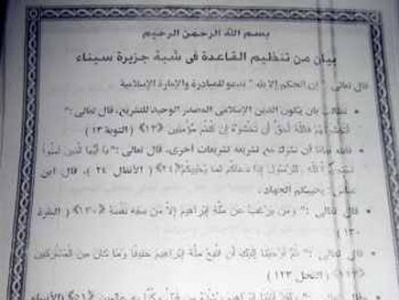 بسم الله الرحمن الرحيم
بيان من تنظيم القاعدة فى شبة جزيرة سيناء
قال تعالى " إن الحكم إلا لله " ندعو للمبادرة والإمارة الإسلامية
نطالب بان يكون الدين الإسلامى المصدر الوحيد للتشريع، قال تعالى :"
فالله أحق أن تخشوه إن كنتم مؤمنين ﴿١٣﴾ ( التوبة ١٣ )
نشرك مع تشريعه تشريعات أخرى، قال تعالى :" يا أيها الذين آمنوا
لله وللرسول إذا دعاكم لما يحييكم ﴿٢٤﴾ ( الأنفال ٢٤ )، قال ابن
يحييكم الجهاد.
قال تعالى :" ومن يرغب عن ملة إبراهيم إلا من سفه نفسه ﴿١٣٠﴾ ( البقرة
١٣٠ )
قال تعالى :" ثم أوحينا إليك أن اتبع ملة إبراهيم حنيفا وما كان من المشركين
﴿١٢٣﴾ ( النحل ١٢٣ )